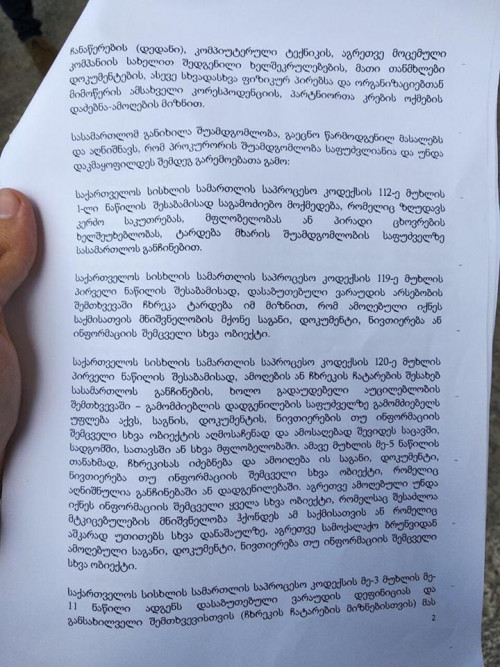 ჩანაწერების (დედანი), კომპიუტერული ტექნიკის, აგრეთვე მოცემული
კომპანიის სახელით შედგენილი ხელშეკრულებების, მათი თანმხლები
დოკუმენტების, ასევე სხვადასხვა ფიზიკურ პირებსა და ორგანიზაციებთან
მიმოწერის ამსახველი კორესპონდენციის, პარტნიორთა კრების ოქმების
დაძებნა-ამოღების მიზნით.
სასამართლომ განიხილა შუამდგომლობა, გაეცნო წარმოდგენილ მასალებს
და აღნიშნავს, რომ პროკურორის შუამდგომლობა საფუძვლიანია და უნდა
დაკმაყოფილდეს შემდეგ გარემოებათა გამო:
საქართველოს სისხლის სამართლის საპროცესო კოდექსის 112-ე მუხლის
1-ლი ნაწილის შესაბამისად საგამოძიებო მოქმედება, რომელიც ზღუდავს
კერძო საკუთრებას, მფლობელობას ან პირადი ცხოვრების
ხელშეუხებლობას, ტარდება მხარის შუამდგომლობის საფუძველზე
სასამართლოს განჩინებით.
საქართველოს სისხლის სამართლის საპროცესო კოდექსის 119-ე მუხლის
პირველი ნაწილის შესაბამისად, დასაბუთებული ვარაუდის არსებობის
შემთხვევაში ჩხრეკა ტარდება იმ მიზნით, რომ ამოღებულ იქნეს
საქმისათვის მნიშვნელობის მქონე საგანი, დოკუმენტი, ნივთიერება ან
ინფორმაციის შემცველი სხვა ობიექტი.
საქართველოს სისხლის სამართლის საპროცესო კოდექსის 120-ე მუხლის
პირველი ნაწილის შესაბამისად, ამოღების ან ჩხრეკის ჩატარების შესახებ
სასამართლოს განჩინების, ხოლო გადაუდებელი აუცილებლობის
შემთხვევაში – გამომძიებლის დადგენილების საფუძველზე გამომძიებელს
უფლება აქვს, საგნის, დოკუმენტის, ნივთიერების თუ ინფორმაციის
შემცველი სხვა ობიექტის აღმოსაჩენად და ამოსაღებად შევიდეს საცავში,
სადგომში, სათავსში ან სხვა მფლობელობაში. ამავე მუხლის მე-5 ნაწილის
თანახმად, ჩხრეკისას იძებნება და ამოიღება ის საგანი, დოკუმენტი,
ნივთიერება თუ ინფორმაციის შემცველი სხვა ობიექტი, რომელიც
აღნიშნულია განჩინებაში ან დადგენილებაში. აგრეთვე ამოღებული უნდა
იქნეს ინფორმაციის შემცველი ყველა სხვა ობიექტი, რომელსაც შესაძლოა
მტკიცებულების მნიშვნელობა ჰქონდეს ამ საქმისათვის ან რომელიც
აშკარად უთითებს სხვა დანაშაულზე, აგრეთვე სამოქალაქო ბრუნვიდან
ამოღებული საგანი, დოკუმენტი, ნივთიერება თუ ინფორმაციის შემცველი
სხვა ობიექტი.
საქართველოს სისხლის სამართლის საპროცესო კოდექსის მე-3 მუხლის მე-
11 ნაწილი ადგენს დასაბუთებული ვარაუდის დეფინიციას და
განსახილველი შემთხვევისთვის (ჩხრეკის ჩატარების მიზნებისთვის) მას
2